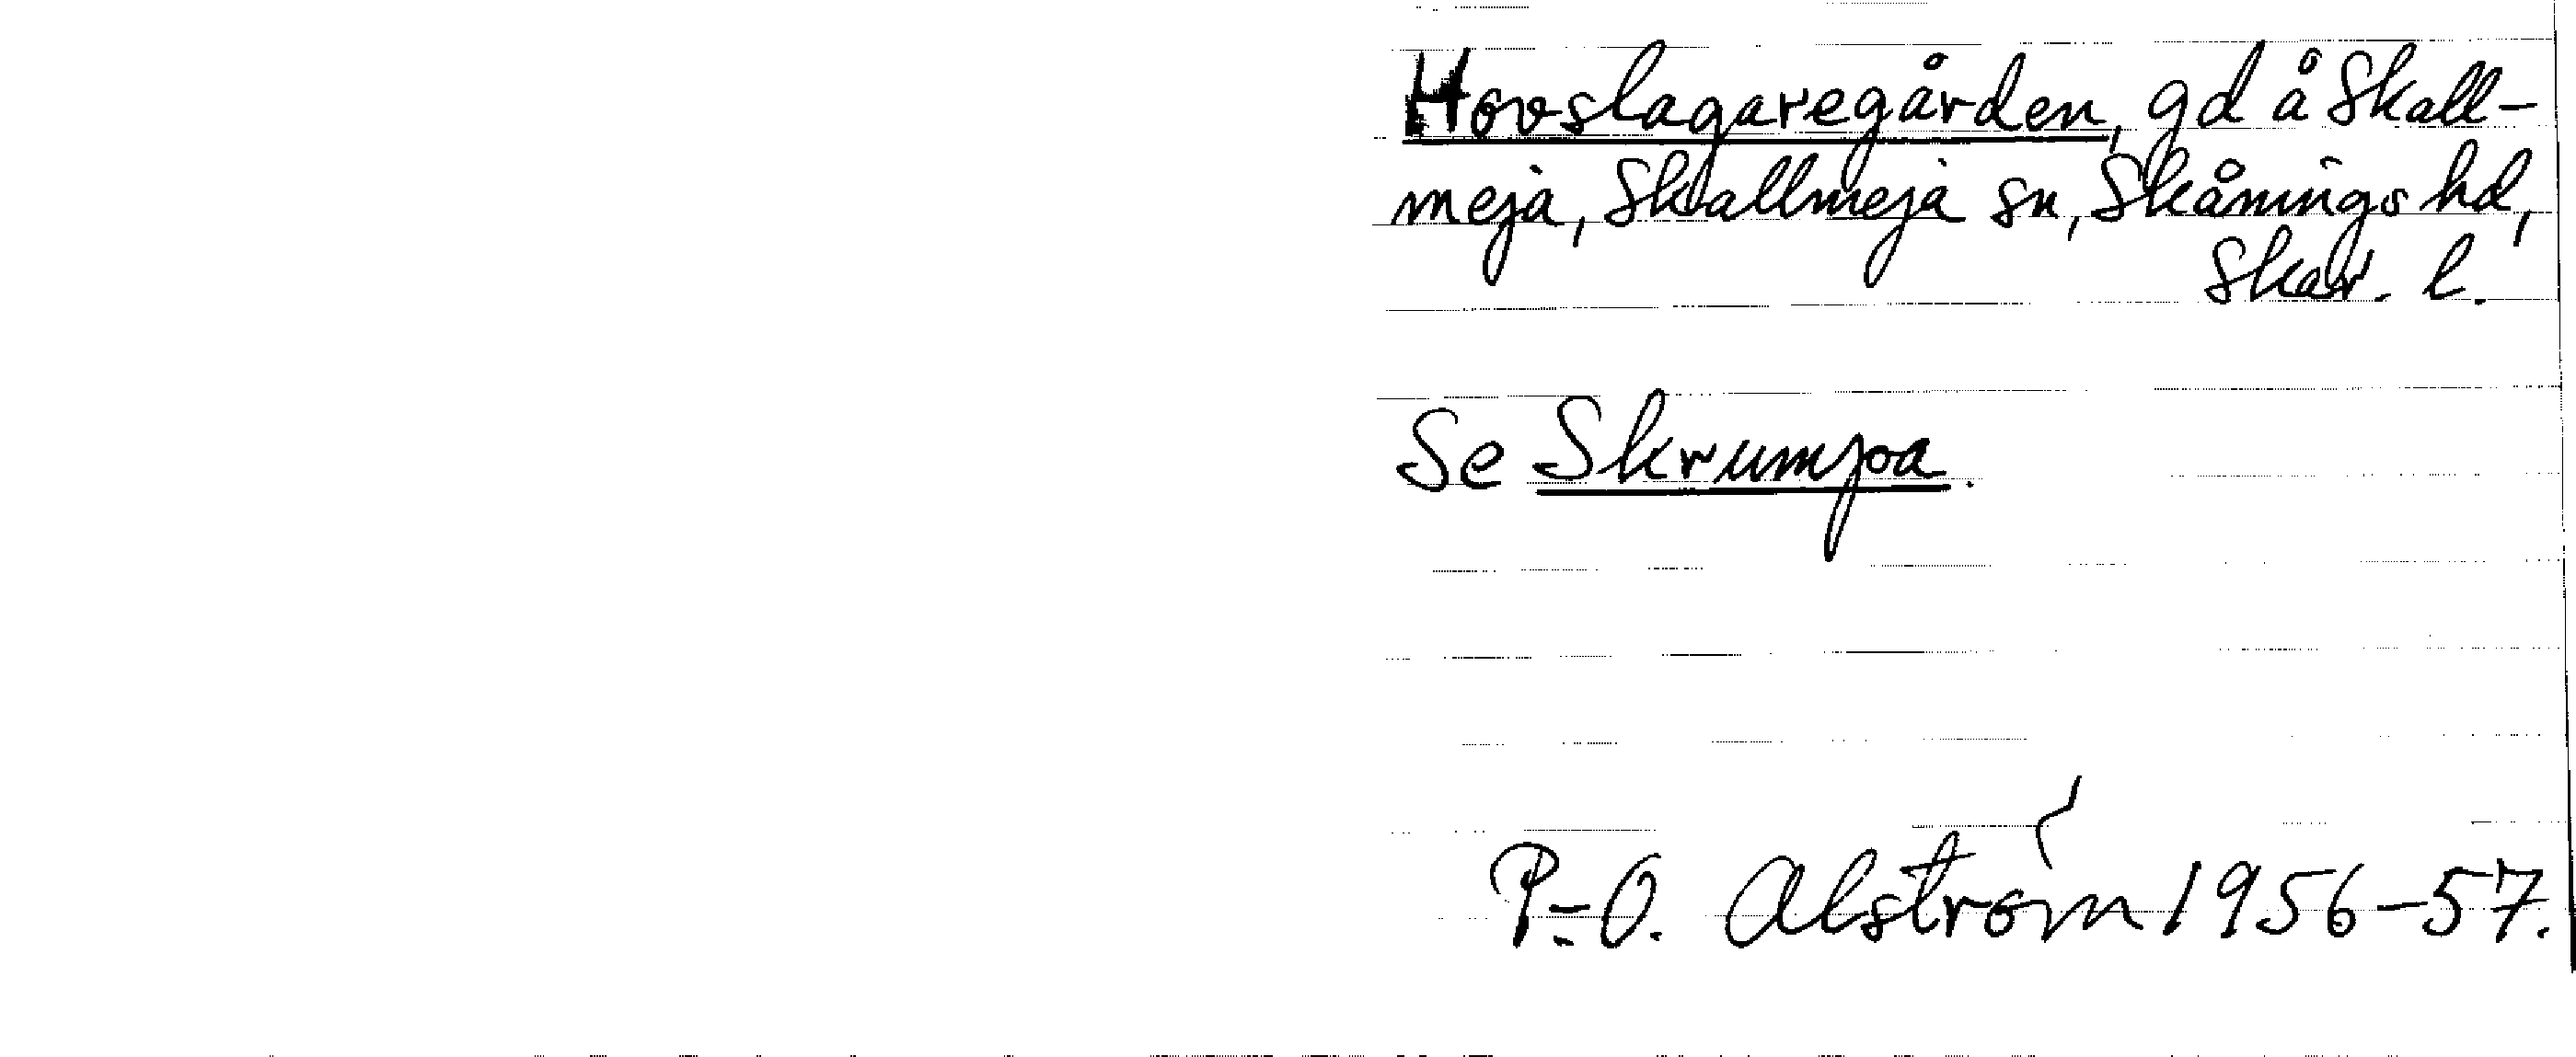 Hovslagaregården, gd å Skall-
meja, Skallmeja sn, Skånings hd,
Skar. l.
Se Skrumpa.
P.-O. Alström 1956-57.